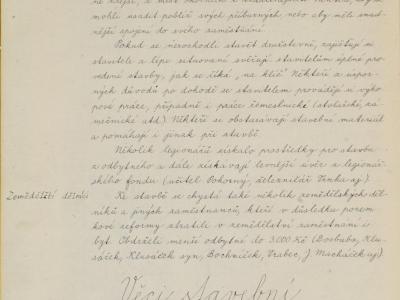 mohli usaditi poblíž svých příbuzných nebo aby měli snad-
nější spojení do svého zaměstnání.
Pokud se nerozhodli stavět družstevně, zajišťují si
stavitele a lépe situovaní svěřují stavitelům úplné pro-
vedení stavby, jak se říká, „na klíč“. Někteří z úspor-
ných důvodů po dohodě se stavitelem provádějí si výko-
pové práce, případně i práce řemeslnické (stolařské, zá-
mečnické atd.) Někteří si obstarávají stavební materiál
a pomáhají i jinak při stavbě.
Několik legionářů získalo prostředky pro stavbu
z odbytného a dále získávají levnější úvěr z legionář-
ského fondu (učitel Pokorný, železničář Trnka aj).
Zemědělští dělníci
Ke stavbě se chystá také několik zemědělských děl-
níků a jiných zaměstnanců, kteří v důsledku pozem-
kové reformy ztratili v zemědělství zaměstnání i
byt. Obdrželi menší odbytné do 3.000 Kč (Doububa, Klu-
sáček, Klusáček syn, Bochníček, Vrabec, J. Macháček aj).
Věci stavební